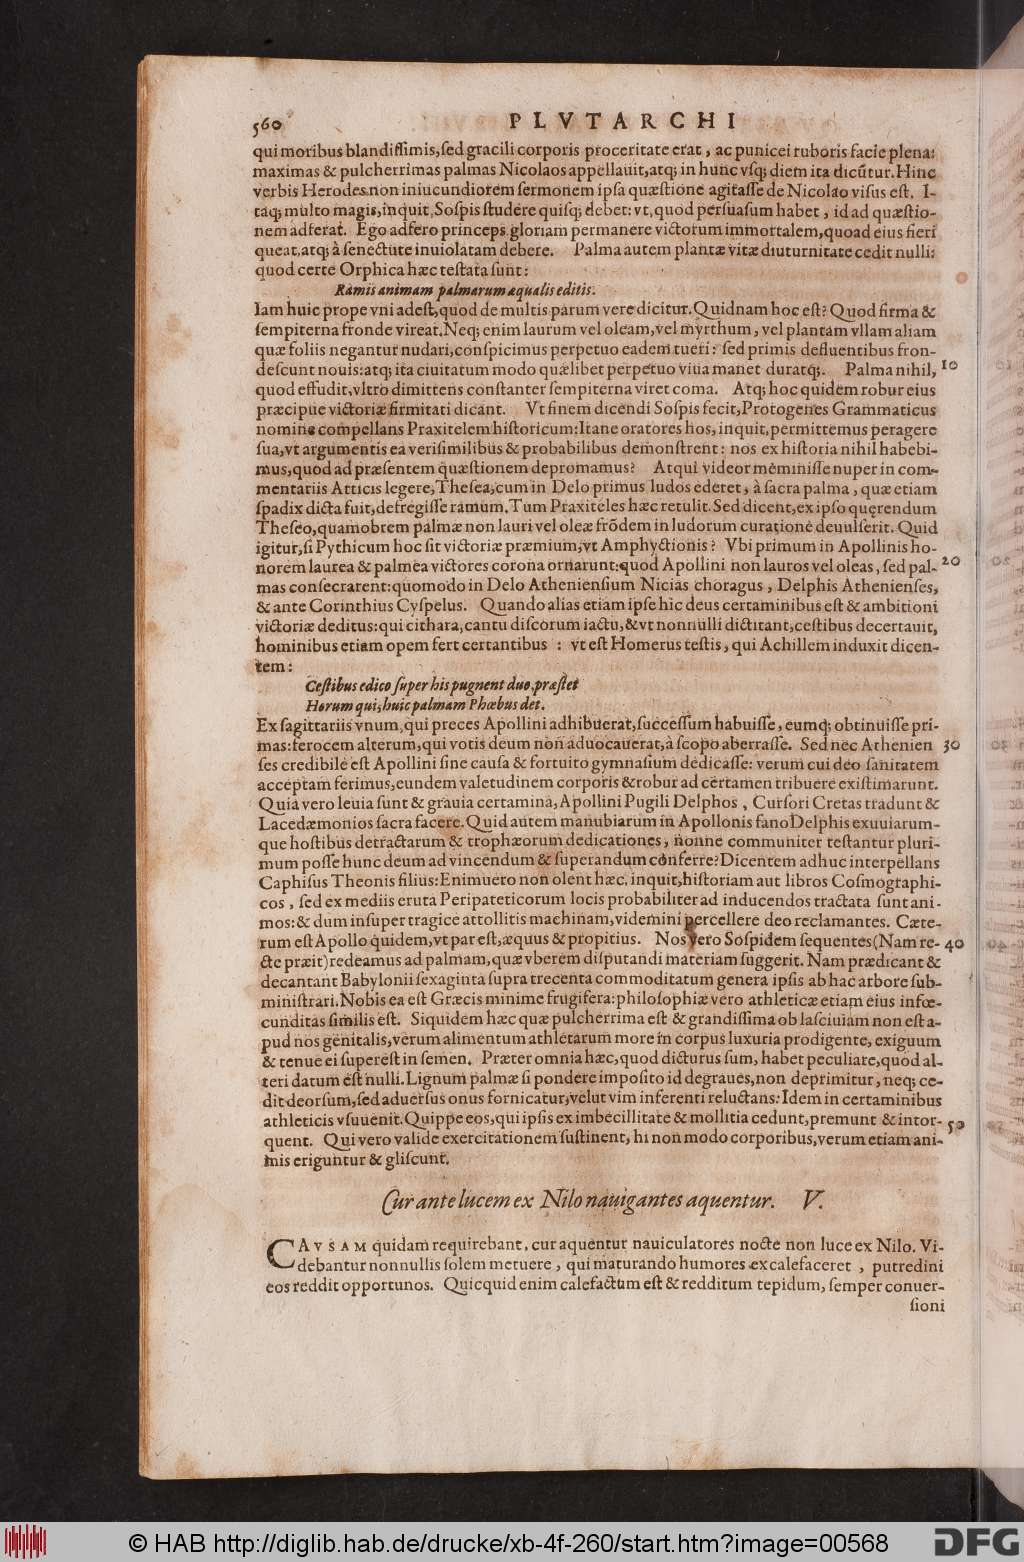 560 PLVTARCHI
qui moribus blandiſſimis, ſed gracili corporis proceritate erat, ac punicei ruboris facie plena:
maximas & pulcherrimas palmas Nicolaos appellauit, atq; in hunc vſq; diem ita dicũtur. Hinc
verbis Herodes non iniucundiorem ſermonem ipſa quæſtione agitaſſe de Nicolao viſus eſt. I-
taq; multo magis, inquit, Soſpis ſtudere quiſq; debet: vt, quod perſuaſum habet, id ad quæſtio-
nem adferat. Ego adfero princeps gloriam permanere victorum immortalem, quoad eius fieri
queat, atq; à ſenectute inuiolatam debere. Palma autem plantæ vitæ diuturnitate cedit nulli:
quod certe Orphica hæc teſtata ſunt:
Ramis animam palmarum æqualis editis.
Iam huic prope vni adeſt, quod de multis parum vere dicitur. Quidnam hoc eſt? Quod firma &
ſempiterna fronde vireat. Neq; enim laurum vel oleam, vel myrthum, vel plantam vllam aliam
quæ foliis negantur nudari, conſpicimus perpetuo eadem tueri: ſed primis defluentibus fron-
deſcunt nouis: atq; ita ciuitatum modo quælibet perpetuo viua manet duratq;. Palma nihil, 10
quod effudit, vltro dimittens conſtanter ſempiterna viret coma. Atq; hoc quidem robur eius
præcipue victoriæ firmitati dicant. Vt finem dicendi Soſpis fecit, Protogenes Grammaticus
nomine compellans Praxitelem hiſtoricum: Itane oratores hos, inquit, permittemus peragere
ſua, vt argumentis ea veriſimilibus & probabilibus demonſtrent: nos ex hiſtoria nihil habebi-
mus, quod ad præſentem quæſtionem depromamus? Atqui videor meminiſſe nuper in com-
mentariis Atticis legere, Theſea, cum in Delo primus ludos ederet, à ſacra palma, quæ etiam
ſpadix dicta fuit, defregiſſe ramum. Tum Praxiteles hæc retulit. Sed dicent, ex ipſo quęrendum
Theſeo, quamobrem palmæ non lauri vel oleæ frõdem in ludorum curationē deuulſerit. Quid
igitur, ſi Pythicum hoc ſit victoriæ præmium, vt Amphyctionis? Vbi primum in Apollinis ho-
norem laurea & palmea victores corona ornarunt: quod Apollini non lauros vel oleas, ſed pal- 20
mas conſecrarent: quomodo in Delo Athenienſium Nicias choragus, Delphis Athenienſes,
& ante Corinthius Cyſpelus. Quando alias etiam ipſe hic deus certaminibus eſt & ambitioni
victoriæ deditus: qui cithara, cantu diſcorum iactu, & vt nonnulli dictitant, ceſtibus decertauit,
hominibus etiam opem fert certantibus : vt eſt Homerus teſtis, qui Achillem induxit dicen-
tem:
Ceſtibus edico ſuper his pugnent duo, præſtet
Horum qui, huic palmam Phœbus det.
Ex ſagittariis vnum, qui preces Apollini adhibuerat, ſucceſſum habuiſſe, eumq; obtinuiſſe pri-
mas: ferocem alterum, qui votis deum non aduocauerat, à ſcopo aberraſſe. Sed nec Athenien 30
ſes credibile eſt Apollini ſine cauſa & fortuito gymnaſium dedicaſſe: verum cui deo ſanitatem
acceptam ferimus, eundem valetudinem corporis & robur ad certamen tribuere exiſtimarunt.
Quia vero leuia ſunt & grauia certamina, Apollini Pugili Delphos, Curſori Cretas tradunt &
Lacedæmonios ſacra facere. Quid autem manubiarum in Apollonis fano Delphis exuuiarum-
que hoſtibus detractarum & trophæorum dedicationes, nonne communiter teſtantur pluri-
mum poſſe hunc deum ad vincendum & ſuperandum conferre? Dicentem adhuc interpellans
Caphiſus Theonis filius: Enimuero non olent hæc, inquit, hiſtoriam aut libros Coſmographi-
cos, ſed ex mediis eruta Peripateticorum locis probabiliter ad inducendos tractata ſunt ani-
mos: & dum inſuper tragice attollitis machinam, videmini percellere deo reclamantes. Cæte-
rum eſt Apollo quidem, vt par eſt, æquus & propitius. Nos vero Soſpidem ſequentes (Nam re- 40
cte præit) redeamus ad palmam, quæ vberem diſputandi materiam ſuggerit. Nam prædicant &
decantant Babylonii ſexaginta ſupra trecenta commoditatum genera ipſis ab hac arbore ſub-
miniſtrari. Nobis ea eſt Græcis minime frugifera: philoſophiæ vero athleticæ etiam eius infœ-
cunditas ſimilis eſt. Siquidem hæc quæ pulcherrima eſt & grandiſſima ob laſciuiam non eſt a-
pud nos genitalis, verum alimentum athletarum more in corpus luxuria prodigente, exiguum
& tenue ei ſupereſt in ſemen. Præter omnia hæc, quod dicturus ſum, habet peculiare, quod al-
teri datum eſt nulli. Lignum palmæ ſi pondere impoſito id degraues, non deprimitur, neq; ce-
dit deorſum, ſed aduerſus onus fornicatur, velut vim inferenti reluctans: Idem in certaminibus
athleticis vſuuenit. Quippe eos, qui ipſis ex imbecillitate & mollitia cedunt, premunt & intor- 50
quent. Qui vero valide exercitationem ſuſtinent, hi non modo corporibus, verum etiam ani-
mis eriguntur & gliſcunt.
Cur ante lucem ex Nilo nauigantes aquentur. V.
CAVSAM quidam requirebant, cur aquentur nauiculatores nocte non luce ex Nilo. Vi-
debantur nonnullis ſolem metuere, qui maturando humores excalefaceret, putredini
eos reddit opportunos. Quicquid enim calefactum eſt & redditum tepidum, ſemper conuer-
ſioni
© HAB http://diglib.hab.de/drucke/xb-4f-260/start.htm?image=00568 DFG